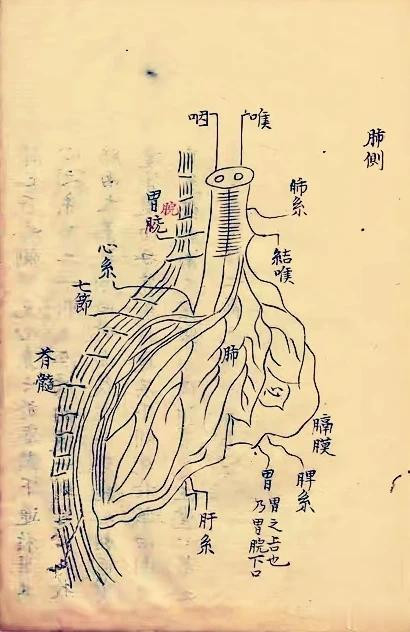 肺側
喉
咽
肺系
結喉
胃脘
脘
心系
七節
脊髓
肺
心
膈膜
脾系
胃
胃之占也
乃胃脘下口
肝系